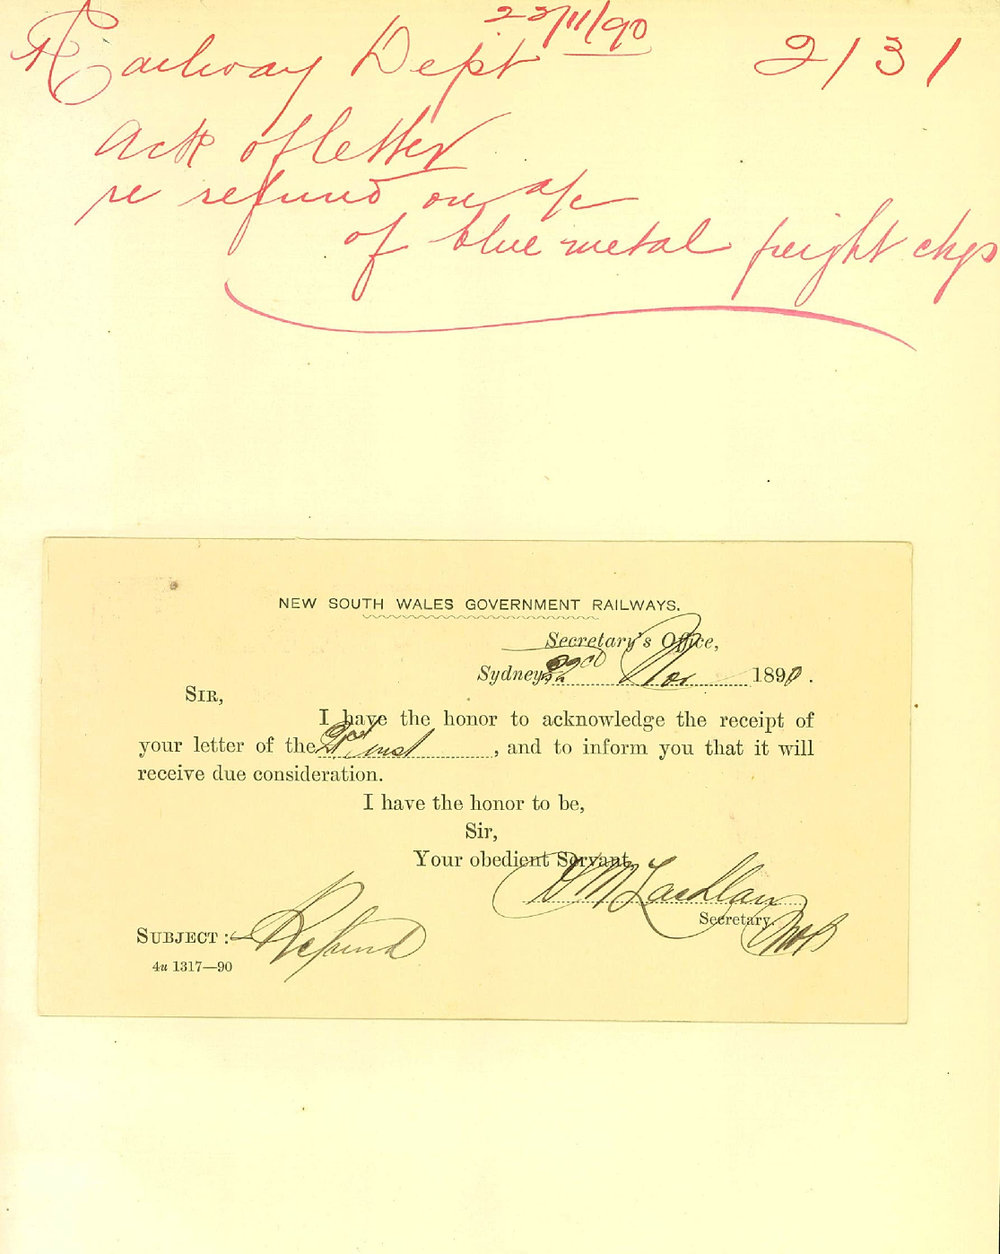 22/11/90
Railway Dept 2131
Ack of letter
re refund on a/c
of blue metal freight chgs
NEW SOUTH WALES GOVERNMENT RAILWAYS.
Secretary's Office,
Sydney, 22nd Nov 1890.
SIR,
I have the honor to acknowledge the receipt of
your letter of the 21st inst, and to inform you that it will
receive due consideration.
I have the honor to be,
Sir,
Your obedient Servant,
H McLachlan
Secretary.
SUBJECT:— Refund
4u 1317—90